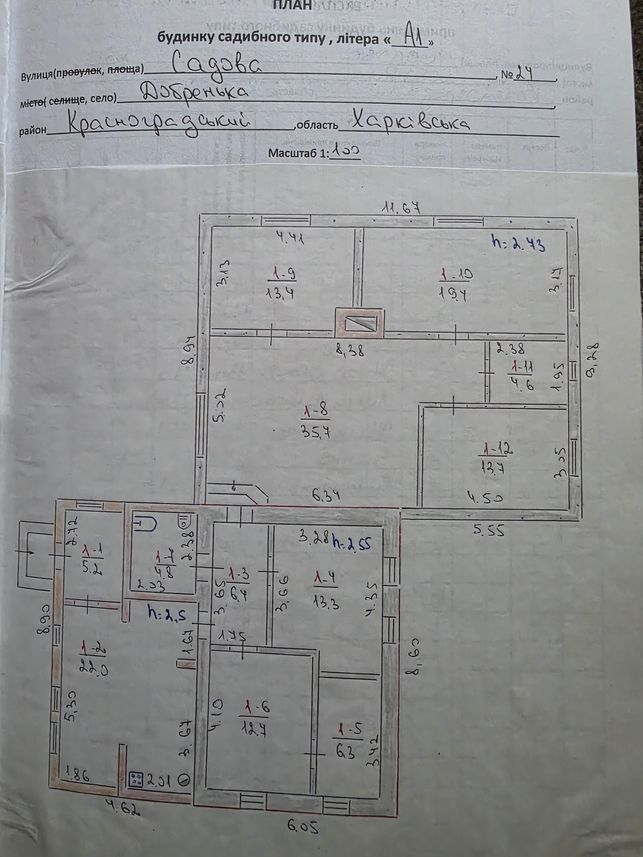 ПЛАН
будинку садибного типу , літера « А1 »
Вулиця(провулок, площа) Садова № 24 ,
місто( селище, село) Добренька ,
район Красноградський ,область Харківська
Масштаб 1: 100
11.67
4.41
h=2.43
3.13
1-9
13,4
1-10
19,4
3.17
8.94
8,38
2.38
1-11
4.6
1.95
9,28
5.02
1-8
35,7
1-12
13,7
3.05
4.50
6.34
5.55
2.72
1-1
5.2
2.38
1-7
4.8
2.03
3.28
h=2.55
1-3
6.4
3.65
3.66
1-4
13.3
4.35
h=2.5
8,90
1.75
1.67
1-2
22.0
8,60
5.30
4.10
1-6
12,7
3.67
1-5
6.3
3.42
1.86
2.01
4.62
6.05